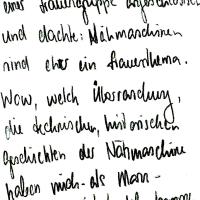 einer Frauengruppe angeschlossen
und dachte: Nähmaschinen
sind eher ein Frauenthema.
Wow, welch Überraschung,
die technischen, historischen
Geschichten der Nähmaschine
haben mich - als Mann -